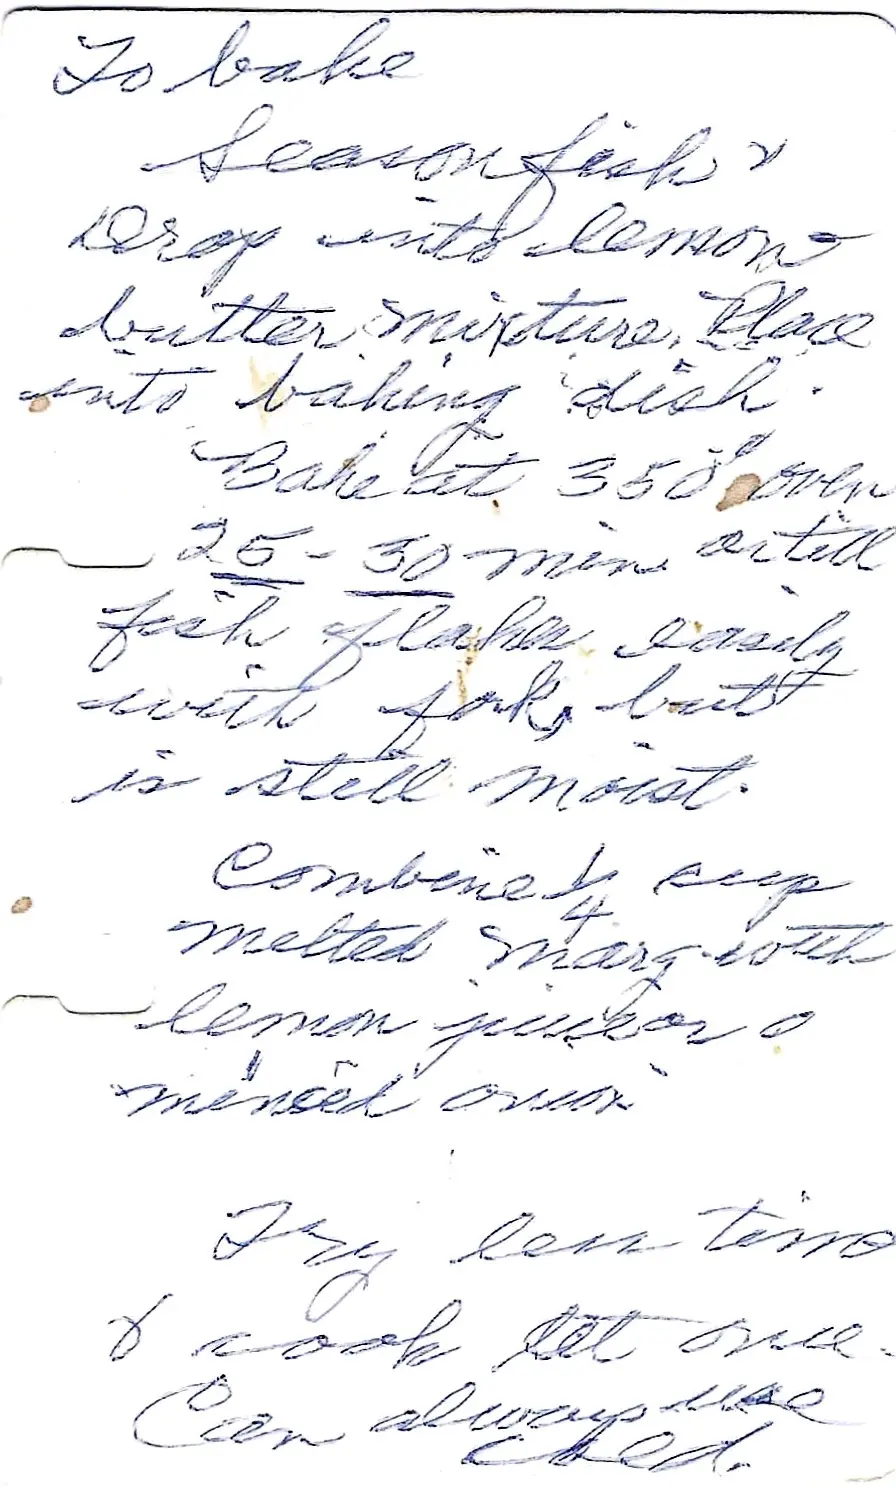 To bake
Season fish &
Drop into lemon
butter mixture. Place
into baking dish.
Bake at 350° oven
25 - 30 min or till
fish flakes easily
with fork, but
is still moist.
Combine 1/4 cup
melted marg. with
lemon juice or
minced onion
Try less time
& cook it once.
Can always use